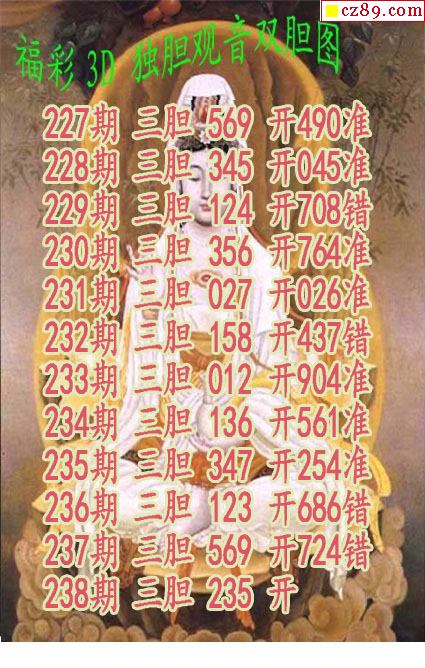 cz89.com
福彩 3D 独胆观音双胆图
227期 三胆 569 开490准
228期 三胆 345 开045准
229期 三胆 124 开708错
230期 三胆 356 开764准
231期 三胆 027 开026准
232期 三胆 158 开437错
233期 三胆 012 开904准
234期 三胆 136 开561准
235期 三胆 347 开254准
236期 三胆 123 开686错
237期 三胆 569 开724错
238期 三胆 235 开